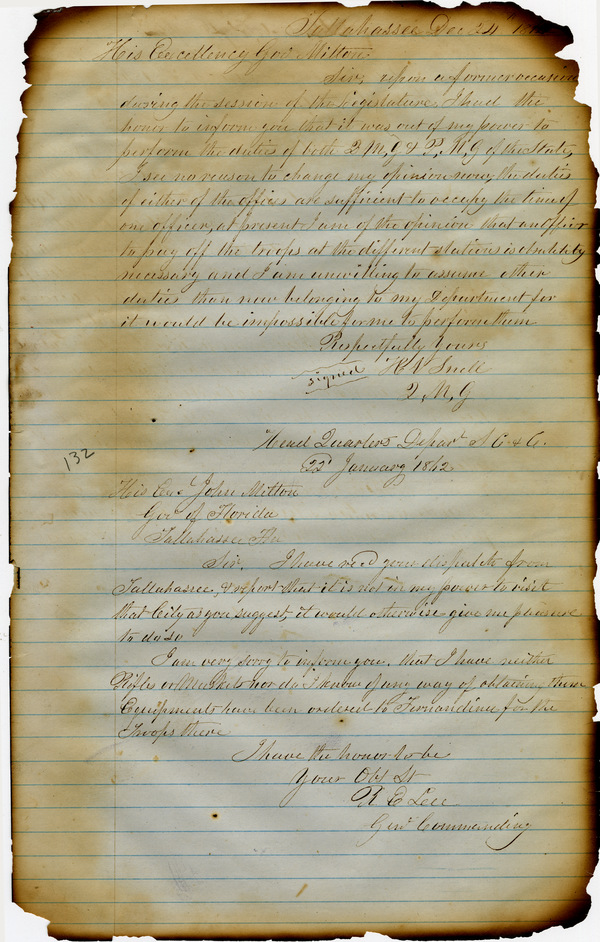 Tallahassee Dec 24th
His Excellency Gov Milton
Sir, upon a former occasion
during the session of the Legislature, I had the
honor to inform you that it was out of my power to
perform the duties of both Q M, G & P, M, G of the State,
I see no reason to change my opinion now, the duties
of either of the offices are sufficient to occupy the time of
one officer, at present I am of the opinion that an officer
to pay off the troops at the different stations is absolutely
necessary and I am unwilling to assume other
duties than now belonging to my Department for
it would be impossible for me to perform them
Respectfully yours
signed H V Snell
Q, M, G
132
Head Quarters Depart S C & G.
22d January 1862
His Exc John Milton
Gov of Florida
Tallahassee Fla
Sir, I have recd your dispatch from
Tallahassee, & regret that it is not in my power to visit
that City as you suggest, it would otherwise give me pleasure
to do so
I am very sorry to inform you, that I have neither
Rifles or Muskets nor do I know of any way of obtaining them
Equipments have been ordered to Fernandina for the
Troops there
I have the honor to be
Your Obt St
R E Lee
Genl Commanding